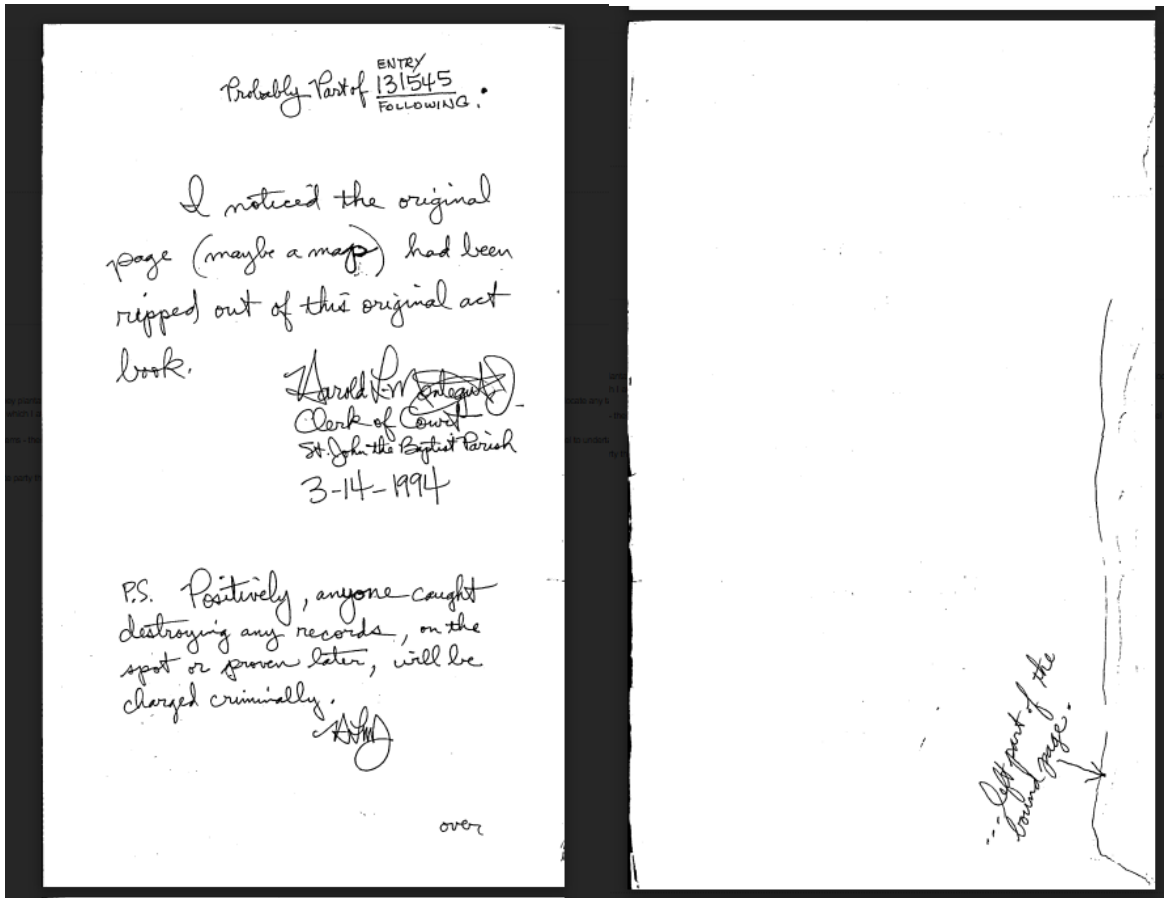 ENTRY
Probably Part of 131545
FOLLOWING.
I noticed the original
page (maybe a map) had been
ripped out of this original act
book.
Harold L. Montegut Jr.
Clerk of Court
St. John the Baptist Parish
3-14-1994
P.S. Positively, anyone caught
destroying any records, on the
spot or proven later, will be
charged criminally.
HLMJ
over
--- left part of the
bound page.